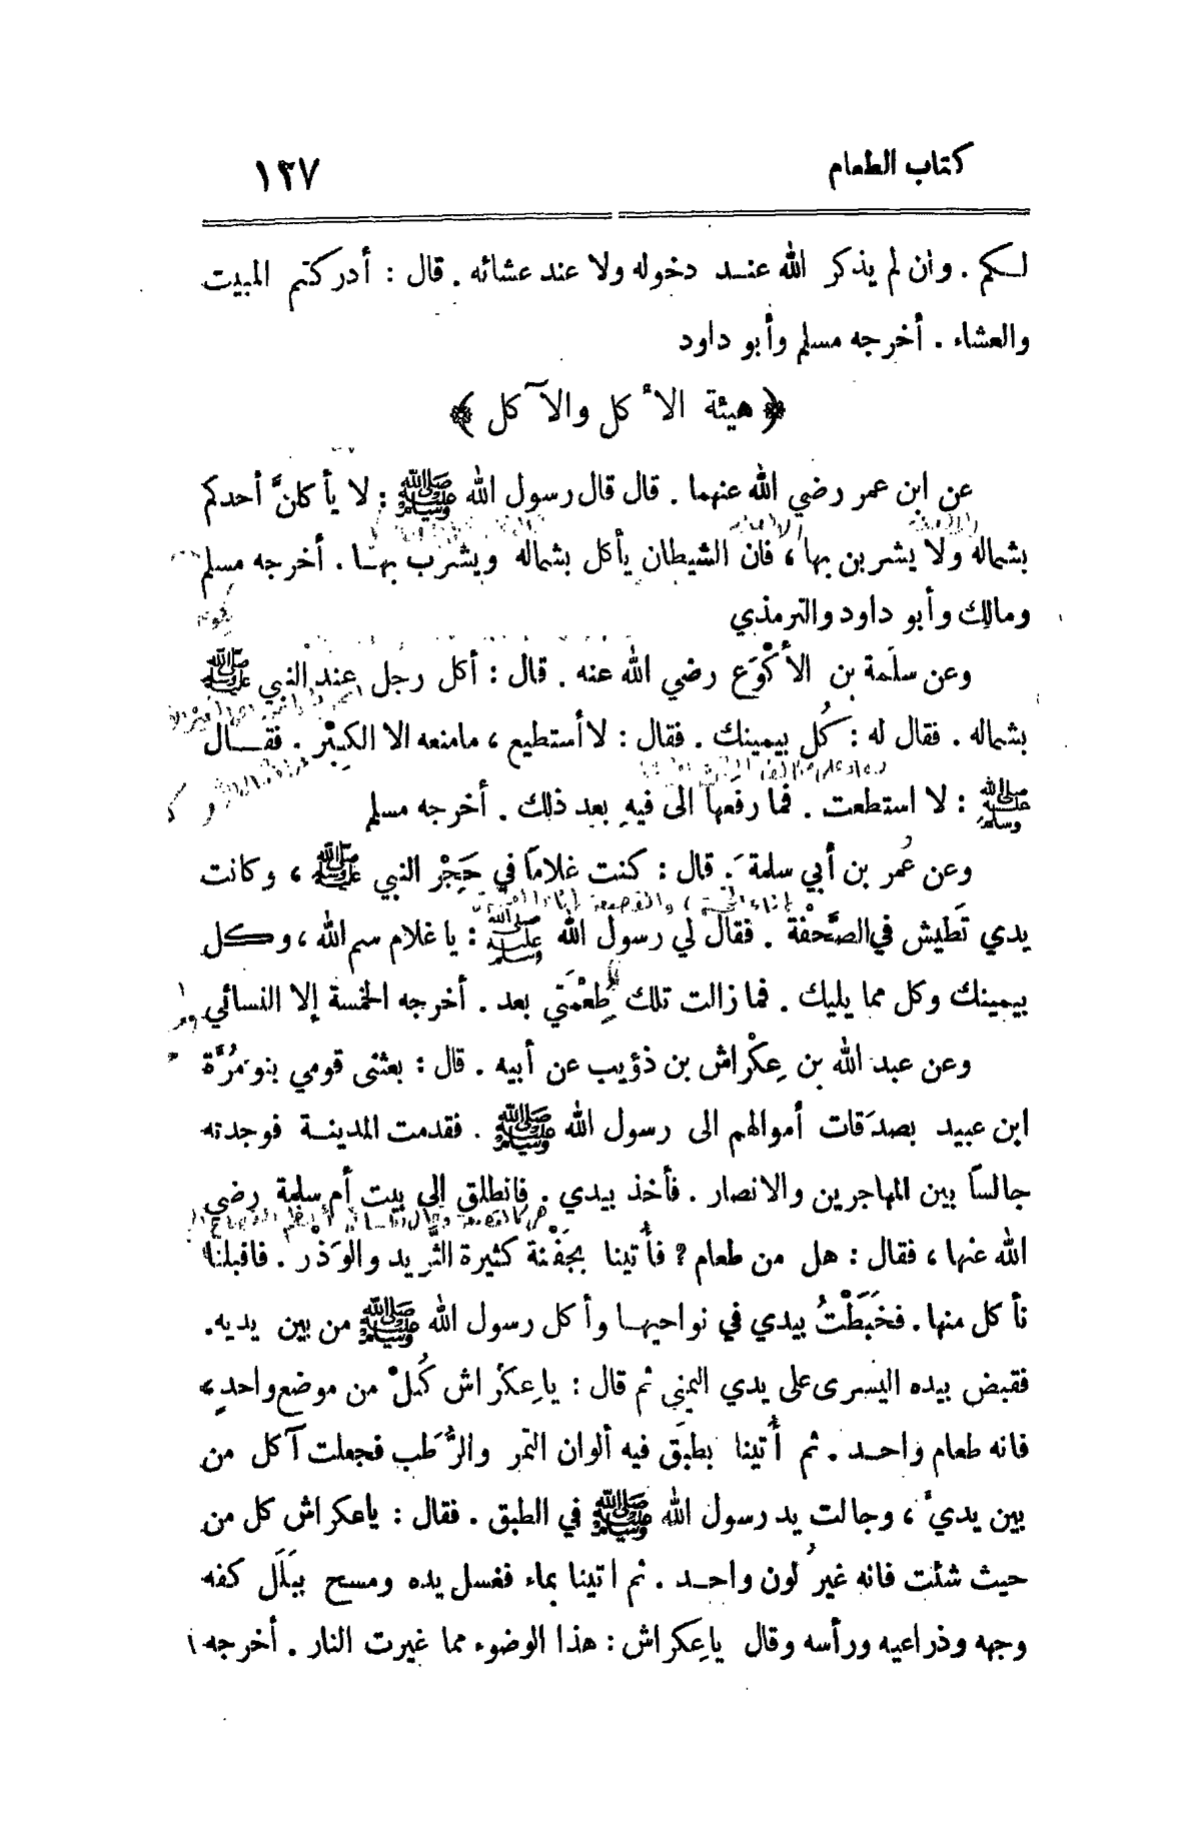 كتاب الطعام ١٢٧
لكم . وان لم يذكر الله عند دخوله ولا عند عشائه . قال : أدركتم المبيت
والعشاء . أخرجه مسلم وأبو داود
﴿ هيئة الأكل والآكل ﴾
عن ابن عمر رضي الله عنهما . قال قال رسول الله ﷺ : لا يأكلنَّ أحدكم
بشماله ولا يشربن بها ، فان الشيطان يأكل بشماله ويشرب بها . أخرجه مسلم
ومالك وأبو داود والترمذي
وعن سلَمة بن الأكْوَع رضي الله عنه . قال : أكل رجُل عند النبي ﷺ
بشماله . فقال له : كُل بيمينك . فقال : لا أستطيع ، مامنعه الا الكِبْر . فقال
ﷺ : لا استطعت . فما رفَعها الى فيهِ بعد ذلك . أخرجه مسلم
وعن عُمر بن أبي سلمةَ . قال : كنت غلاماً في حَجِرْ النبي ﷺ ، وكانت
يدي تَطيش في الصَّحْفة . فقال لي رسول الله ﷺ : يا غلام سم الله ، وكل
بيمينك وكل مما يليك . فما زالت تلك طِعْمَتي بعد . أخرجه الخمسة إلا النسائي
وعن عبد الله بن عِكْراش بن ذؤيب عن أبيه . قال : بعثنى قومي بنو مُرَّة
ابن عبيد بصدَقات أموالهم الى رسول الله ﷺ . فقدمت المدينة فوجدته
جالساً بين المهاجرين والانصار . فأخذ بيدي . فانطلق إلى بيت أم سلمة رضي
الله عنها ، فقال : هل من طعام ؟ فأُتينا بجَفْنة كثيرة الثَّريد والوَذْر . فاقبلنا
نأكل منها . فخَبَطْتُ بيدي في نواحيها وأكل رسول الله ﷺ من بين يديه .
فقبض بيده اليسرى على يدي اليمني ثم قال : يا عِكْراش كُلْ من موضع واحدٍ ،
فانه طعام واحد . ثم أُتينا بطبَق فيه ألوان التمر والرُّطَب فجعلت آكل من
بين يديَّ ، وجالت يد رسول الله ﷺ في الطبق . فقال : يا عكراش كل من
حيث شئت فانه غيرُ لون واحد . ثم اتينا بماء فغسل يده ومسح ببَلَل كفه
وجهه وذراعيه ورأسه وقال ياعِكراش : هذا الوضوء مما غيرت النار . أخرجه